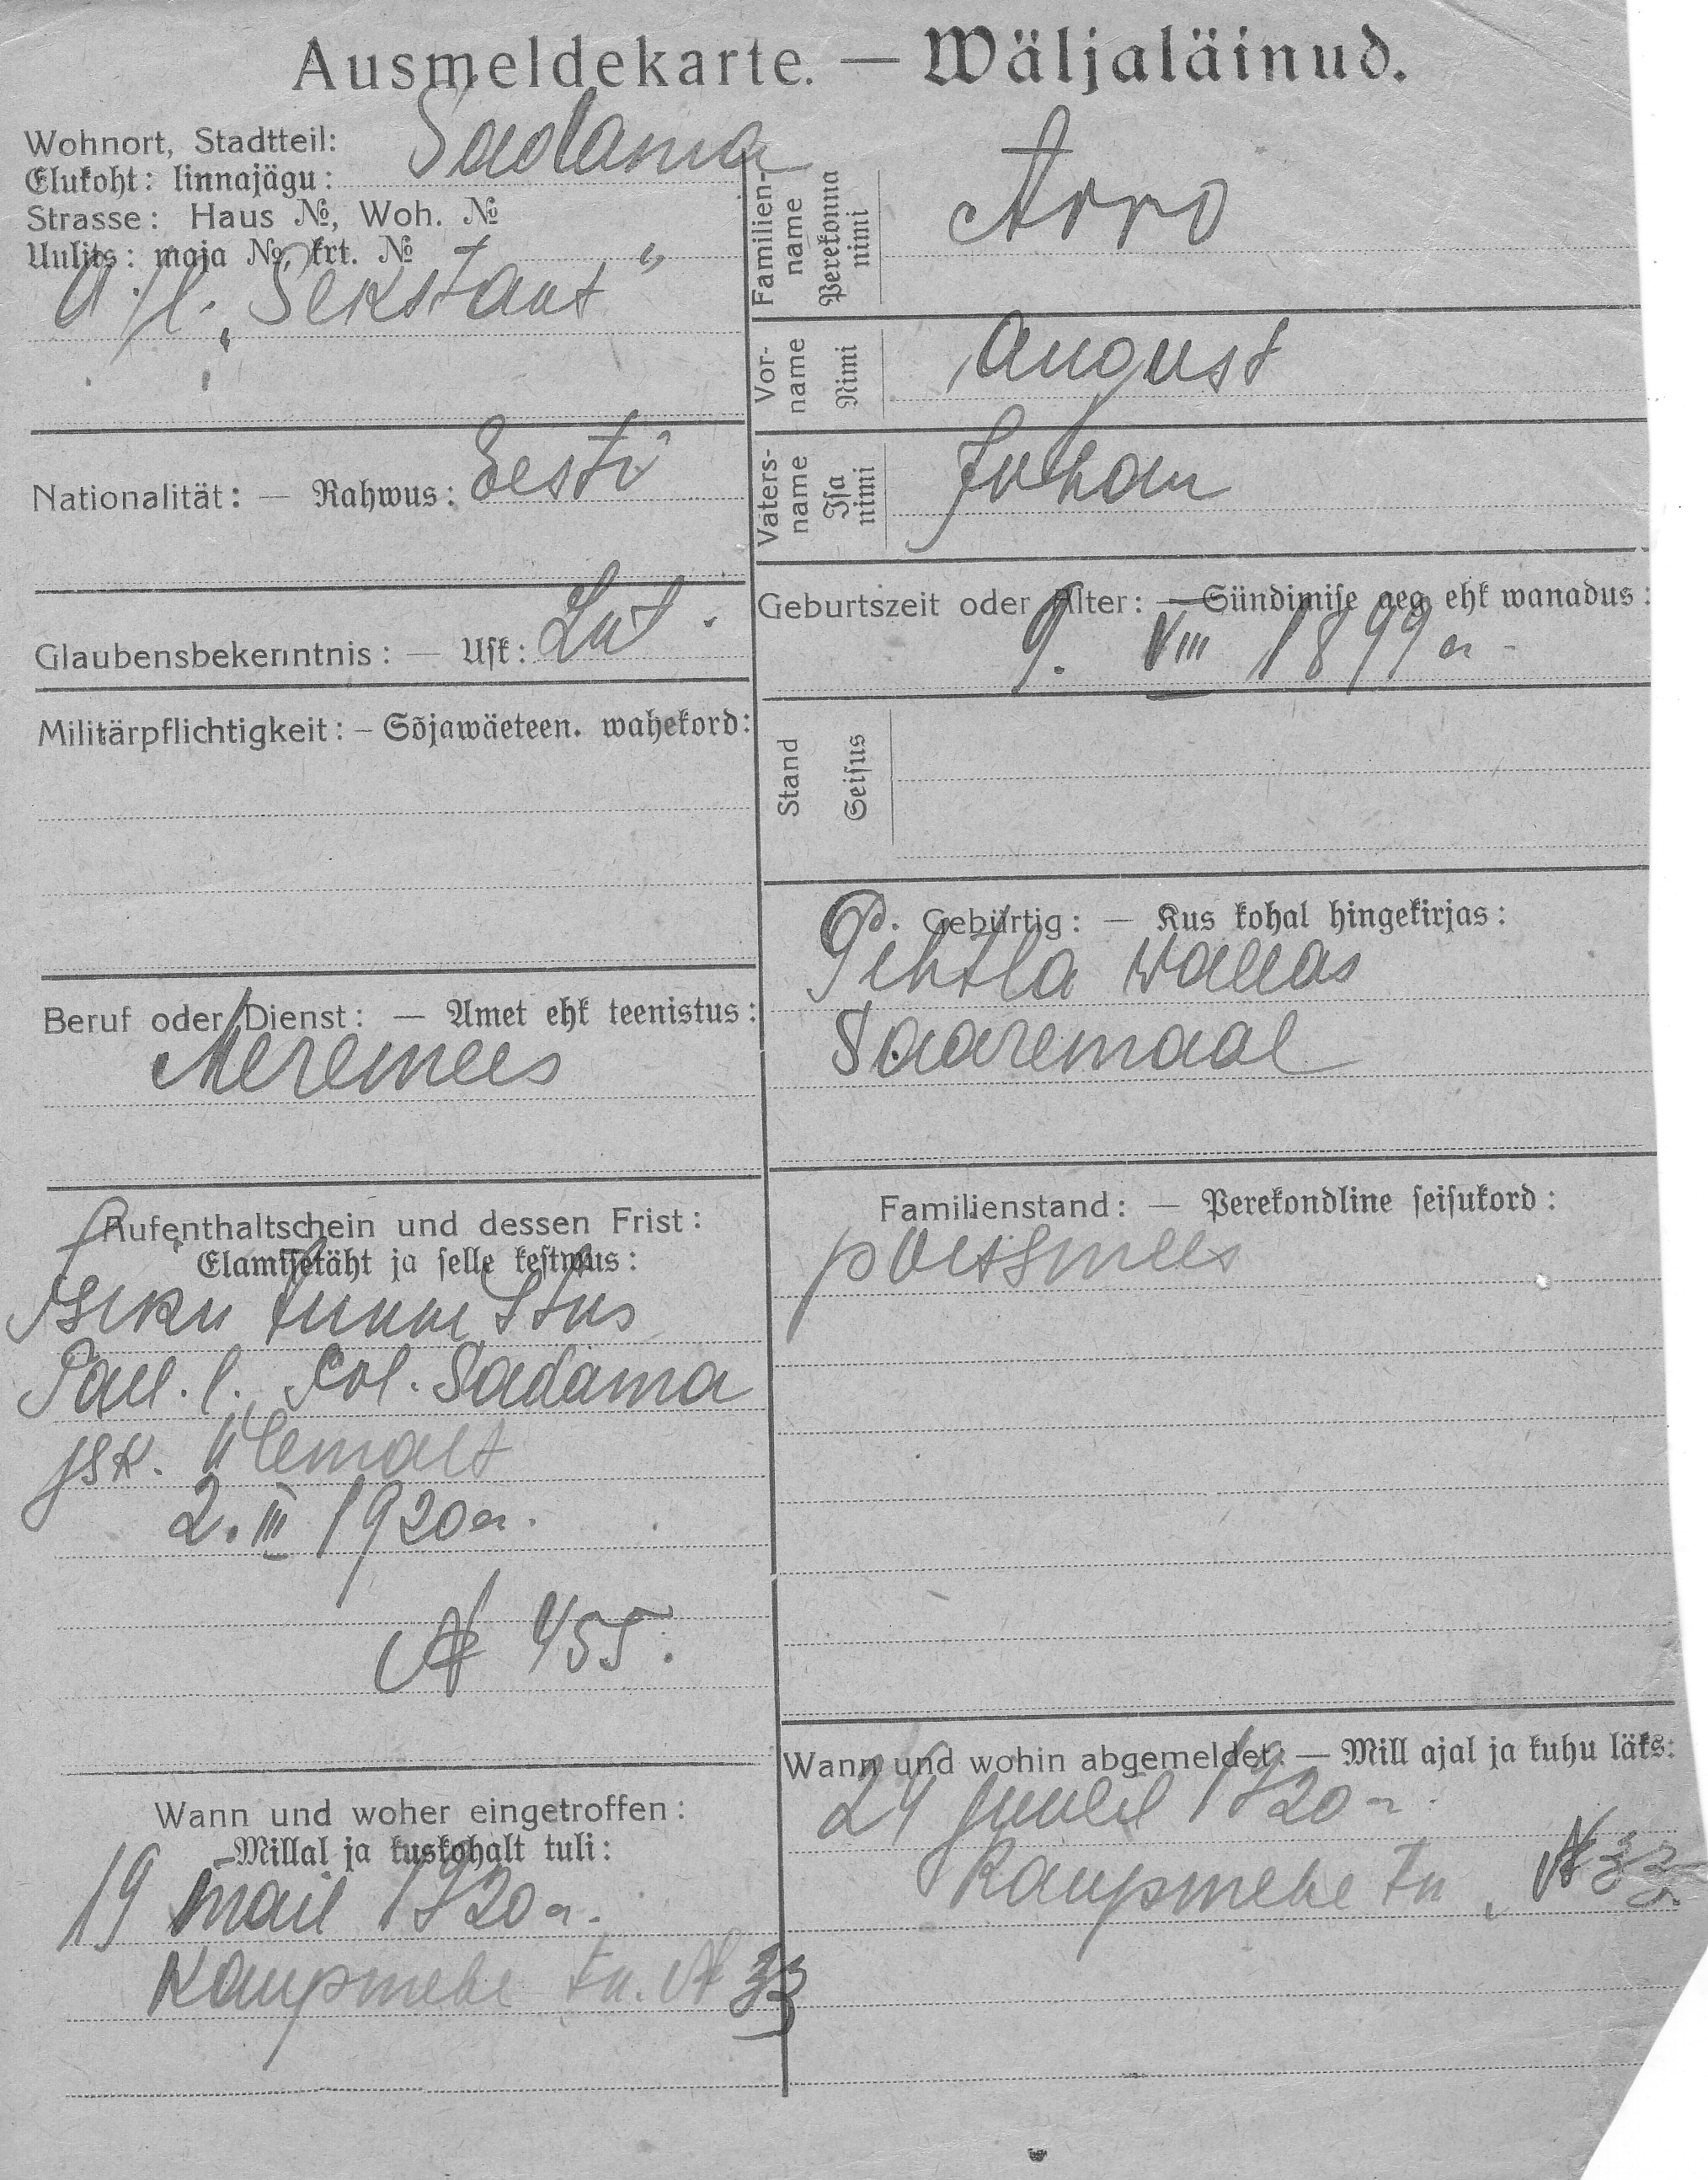 Ausmeldekarte. — Wäljaläinud.
Wohnort, Stadtteil:
Elukoht: linnajägu: Sadama
Strasse: Haus №, Woh. №
Uulits: maja №, krt. №
A/l. „Sekstant"
Nationalität: — Rahwus: Eesti
Glaubensbekenntnis: — Usk: Lut.
Militärpflichtigkeit: — Sõjawäeteen. wahekord:
Beruf oder Dienst: — Amet ehk teenistus:
Meremees
Aufenthaltschein und dessen Frist:
Elamisetäht ja selle kestwus:
Isiku tunnistus
Tall. l. Pol. Sadama
jsk. ülemalt
2. III 1920 a.
№ 455.
Wann und woher eingetroffen:
Millal ja kuskohalt tuli:
19 mail 1920 a.
Kaupmehe tn. № 33
Familien-
name
Perekonna
nimi
Arro
Vor-
name
Nimi
August
Vaters-
name
Isa
nimi
Juhan
Geburtszeit oder Alter: — Sündimise aeg ehk wanadus:
9. VIII 1899 a.
Stand
Seisus
Gebürtig: — Kus kohal hingekirjas:
Pihtla wallas
Saaremaal
Familienstand: — Perekondline seisukord:
poissmees
Wann und wohin abgemeldet: — Mill ajal ja kuhu läks:
24 juulil 1920 a.
Kaupmehe tn. № 33